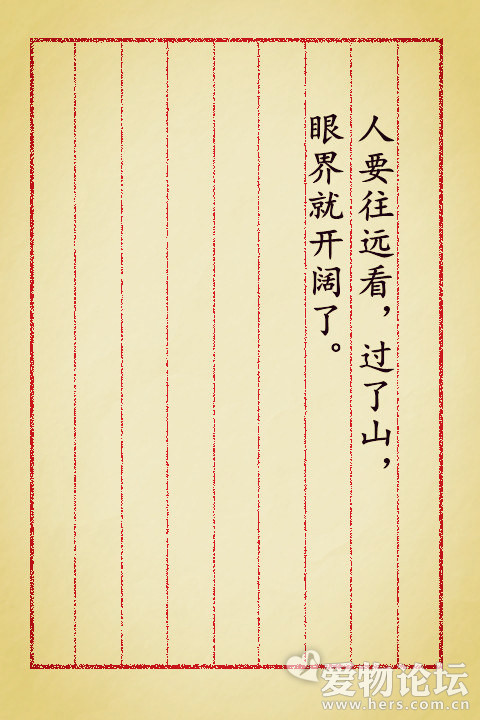 人要往远看，过了山，
眼界就开阔了。
爱物论坛
www.hers.com.cn